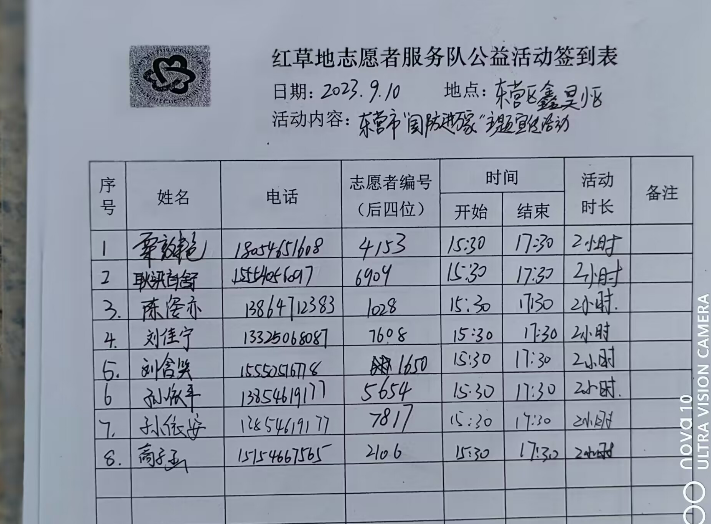 红草地志愿者服务队公益活动签到表
日期：2023.9.10 地点：东营区鑫昊小区
活动内容：东营市"国防进万家"主题宣传活动
序号 姓名 电话 志愿者编号（后四位） 时间 开始 结束 活动时长 备注
1 18054651608 4153 15:30 17:30 2小时
2 15554056097 6909 15:30 17:30 2小时
3. 陈姿亦 13864712383 1028 15:30 17:30 2小时.
4. 刘佳宁 13325068087 7608 15:30 17:30 2小时
5. 刘含笑 15550516778 1650 15:30 17:30 2小时
6 孙依平 13854619177 5654 15:30 17:30 2小时.
7. 孙依安 13854619177 7817 15:30 17:30 2小时
8. 15154667565 2106 15:30 17:30 2小时
nova 10
ULTRA VISION CAMERA